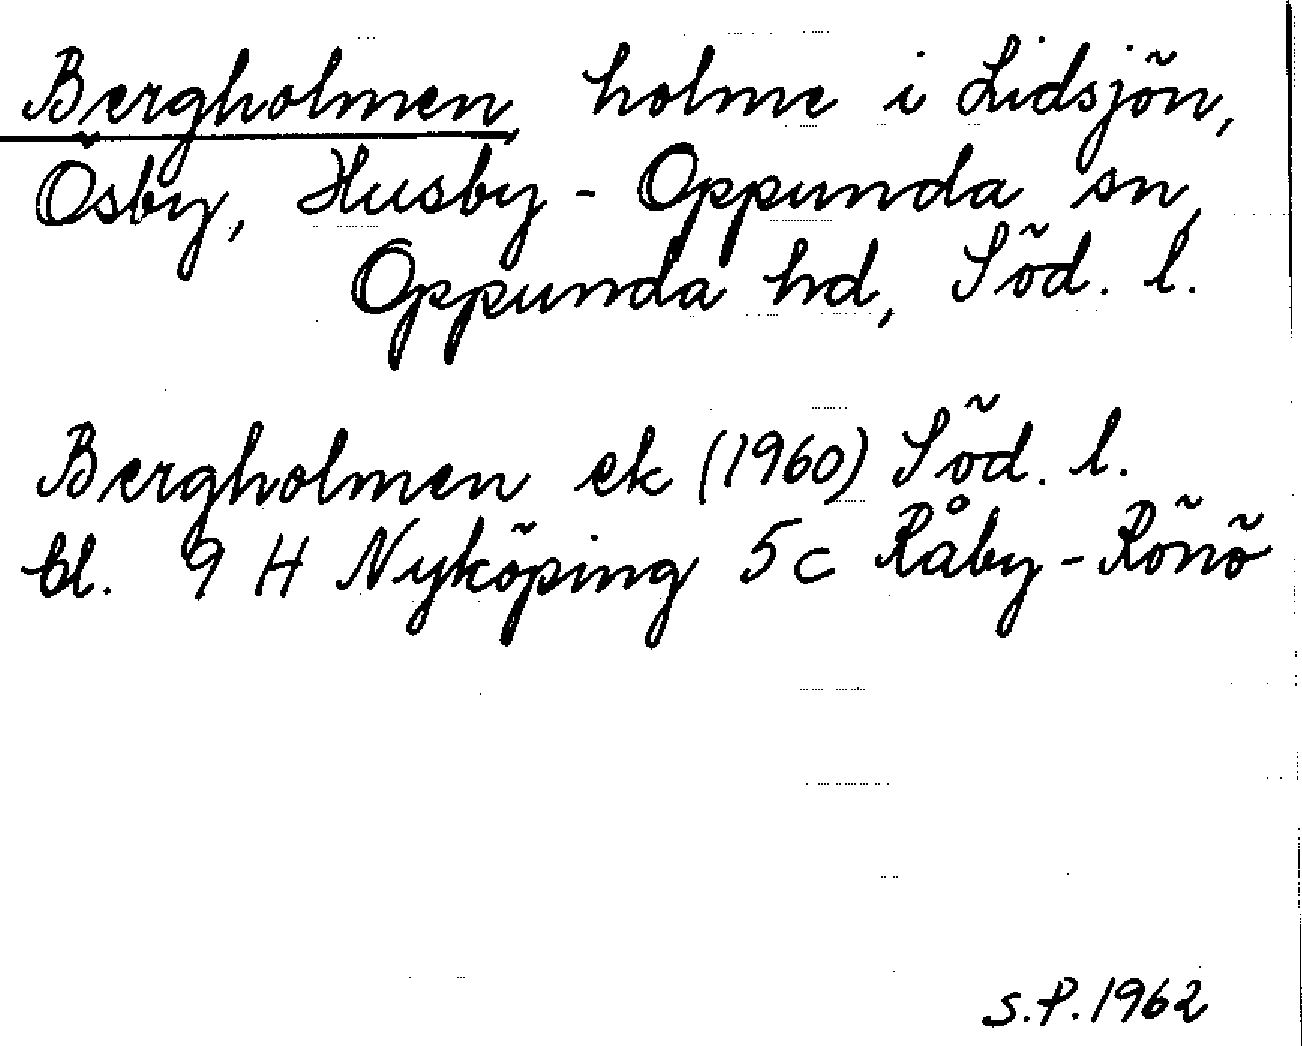 Bergholmen, holme i Lidsjön,
Ösby, Husby-Oppunda sn,
Oppunda hd, Söd. l.
Bergholmen ek (1960) Söd. l.
bl. 9 H Nyköping 5c Råby-Rönö
S.P. 1962